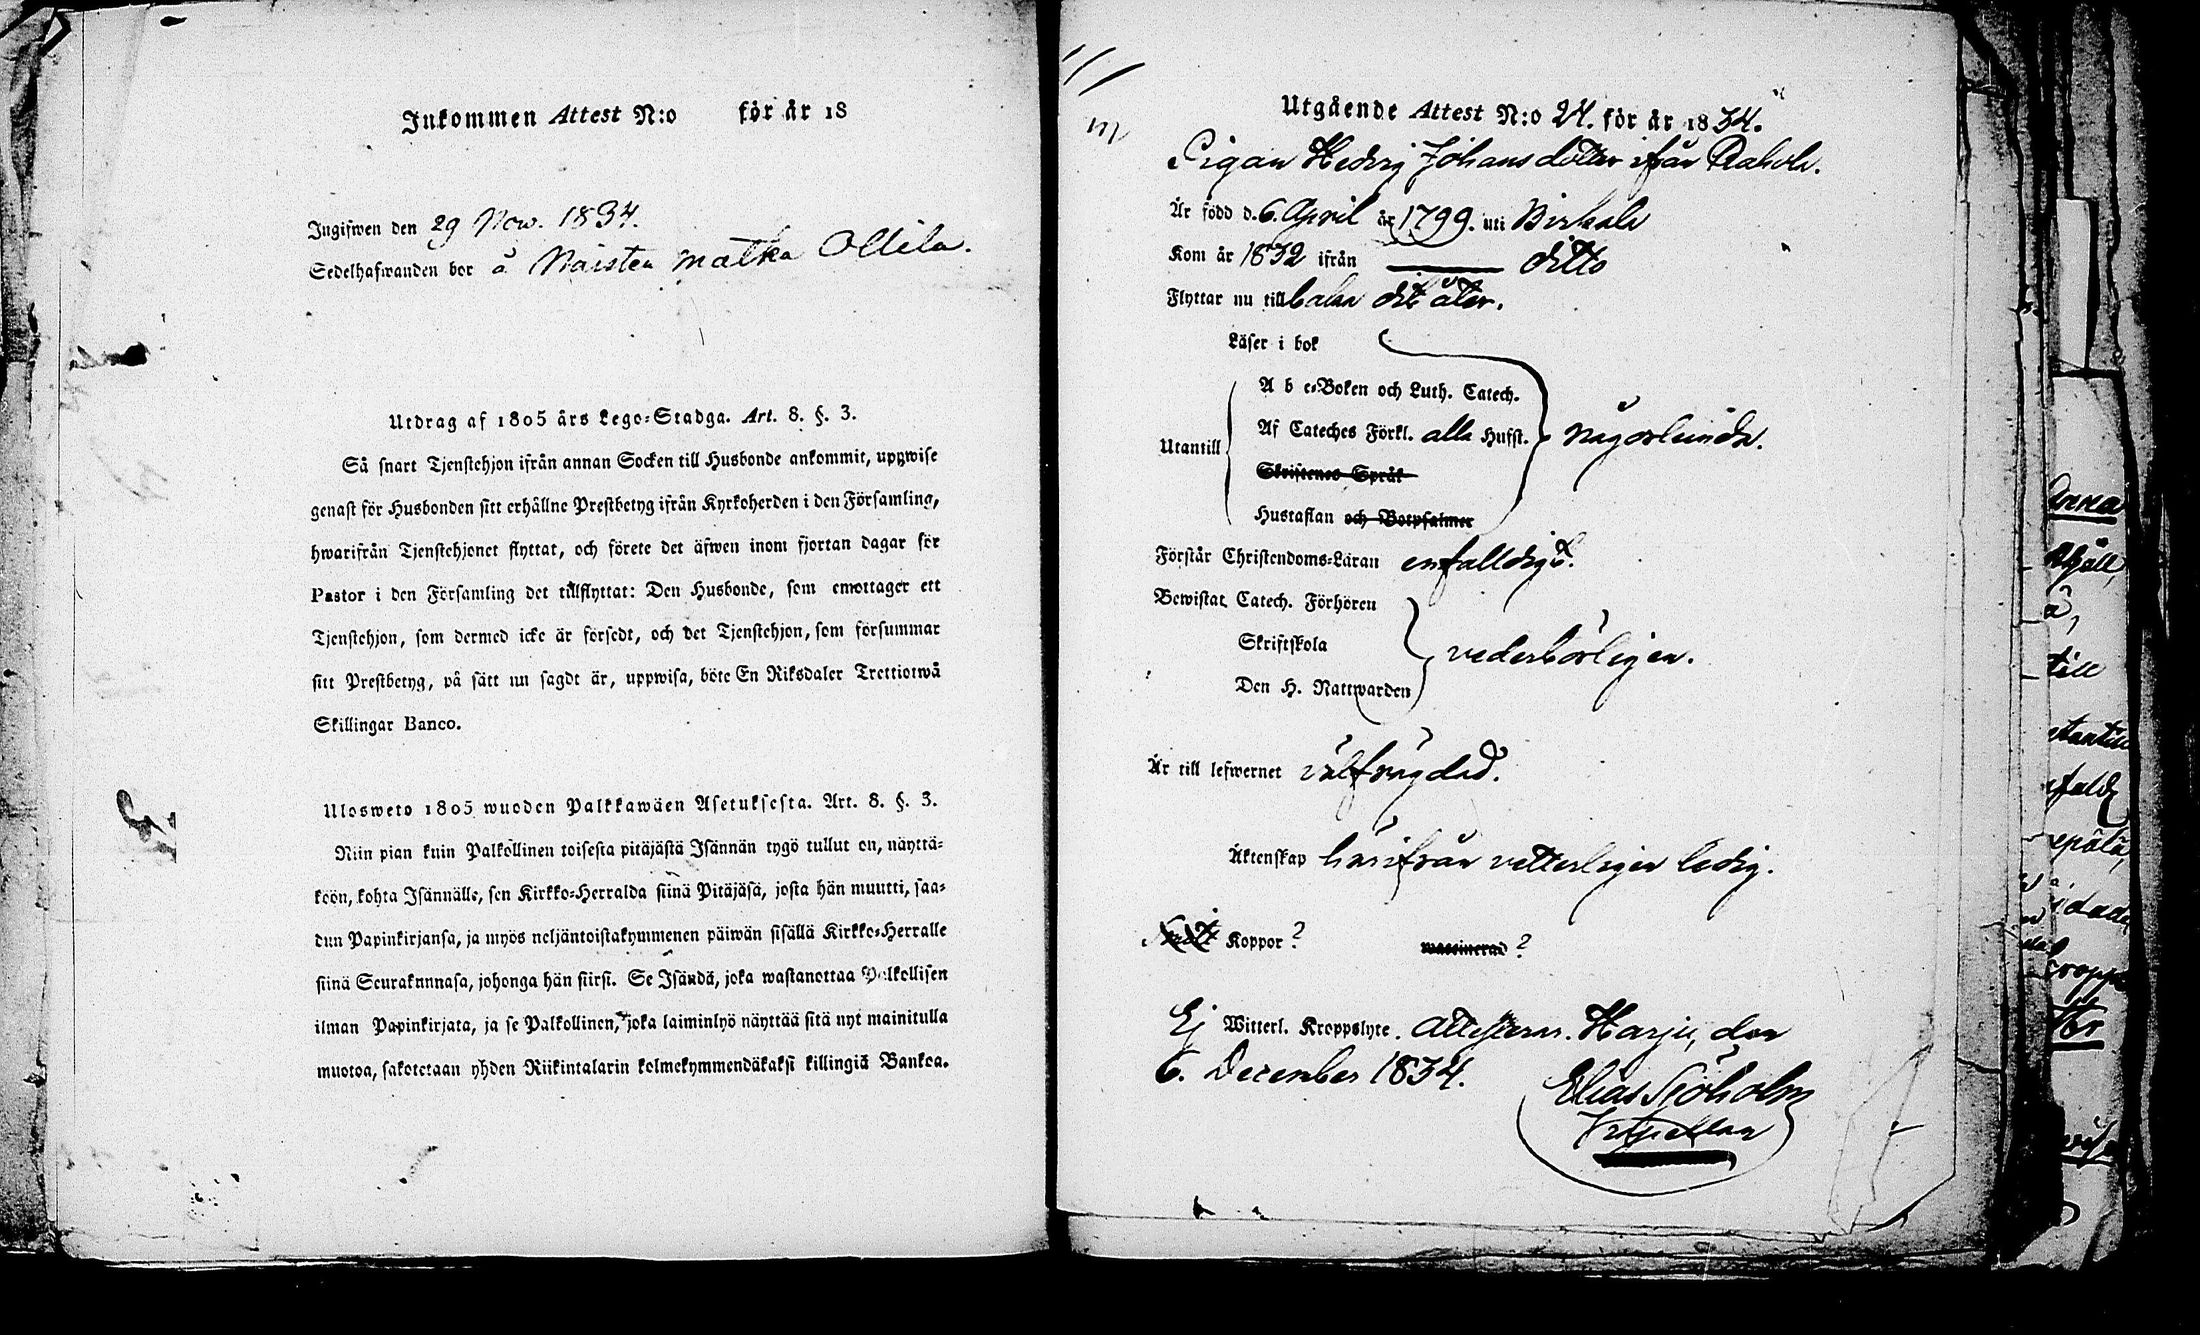 Inkommen Attest N:o för år 18
Ingifwen den 29 Nov. 1834.
Sedelhafwanden bor å Naisten matka Ollila.
Utdrag af 1805 års Lego-Stadga. Art. 8. §. 3.
Så snart Tjenstehjon ifrån annan Socken till Husbonde ankommit, uppwise
genast för Husbonden sitt erhållne Prestbetyg ifrån Kyrkoherden i den Församling,
hwarifrån Tjenstehjonet flyttat, och förete det äfwen inom fjortan dagar för
Pastor i den Församling det tillflyttat: Den Husbonde, som emottager ett
Tjenstehjon, som dermed icke är försedt, och det Tjenstehjon, som försummar
sitt Prestbetyg, på sätt nu sagdt är, uppwisa, böte En Riksdaler Trettiotwå
Skillingar Banco.
Ulosweto 1805 wuoden Palkkawäen Asetuksesta. Art. 8. §. 3.
Niin pian kuin Palkollinen toisesta pitäjästä Isännän tygö tullut on, näyttä-
köön, kohta Isännälle, sen Kirkko-Herralda siinä Pitäjäsä, josta hän muutti, saa-
dun Papinkirjansa, ja myös neljäntoistakymmenen päiwän sisällä Kirkko-Herralle
siinä Seurakunnasa, johonga hän siirsi. Se Isändä, joka wastanottaa Palkollisen
ilman Papinkirjata, ja se Palkollinen, joka laiminlyö näyttää sitä nyt mainitulla
muotoa, sakotetaan yhden Riikintalarin kolmekymmendäkaksi killingiä Bankoa.
Utgående Attest N:o 24. för år 1834.
Pigan Hedvig Johansdotter ifrån Rahola.
Är född d. 6. April år 1799. uti Birkala
Kom år 1832 ifrån ditto
Flyttar nu till dit åter.
Läser i bok
A b c-Boken och Luth. Catech.
Utantill Af Cateches Förkl. alla Hufst. någorlunda.
Skriftenes Språk
Hustaflan och Botpsalmer
Förstår Christendoms-Läran enfalldigt.
Bewistat Catech. Förhören
Skriftskola vederbörligen.
Den H. Nattwarden
Är till lefwernet välfrägdad.
Äktenskap härifrån vetterligen ledig.
Koppor? waccinerad?
Ej Witterl. Kroppslyte. Attesterar. Harju, den
6. December 1834.
Elias Sjöholm